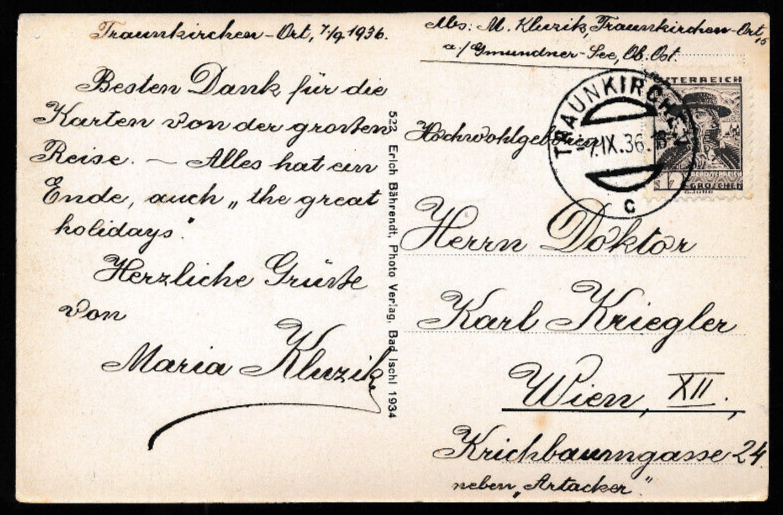 Traunkirchen-Ort, 7/9 1936.
Besten Dank für die
Karten von der großen
Reise. — Alles hat ein
Ende, auch „the great
holidays“.
Herzliche Grüße
von
Maria Kluzik
522 Erich Bährendt, Photo Verlag, Bad Ischl 1934
Abs: M. Kluzik, Traunkirchen-Ort, 15
a./Gmundner-See, Ob. Öst.
ÖSTERREICH
TRAUNKIRCHEN
7.IX.36.
C
GROSCHEN
Hochwohlgeboren
Herrn Doktor
Karl Kriegler
Wien, XII.,
Krichbaumgasse 24
neben „Artacker“.